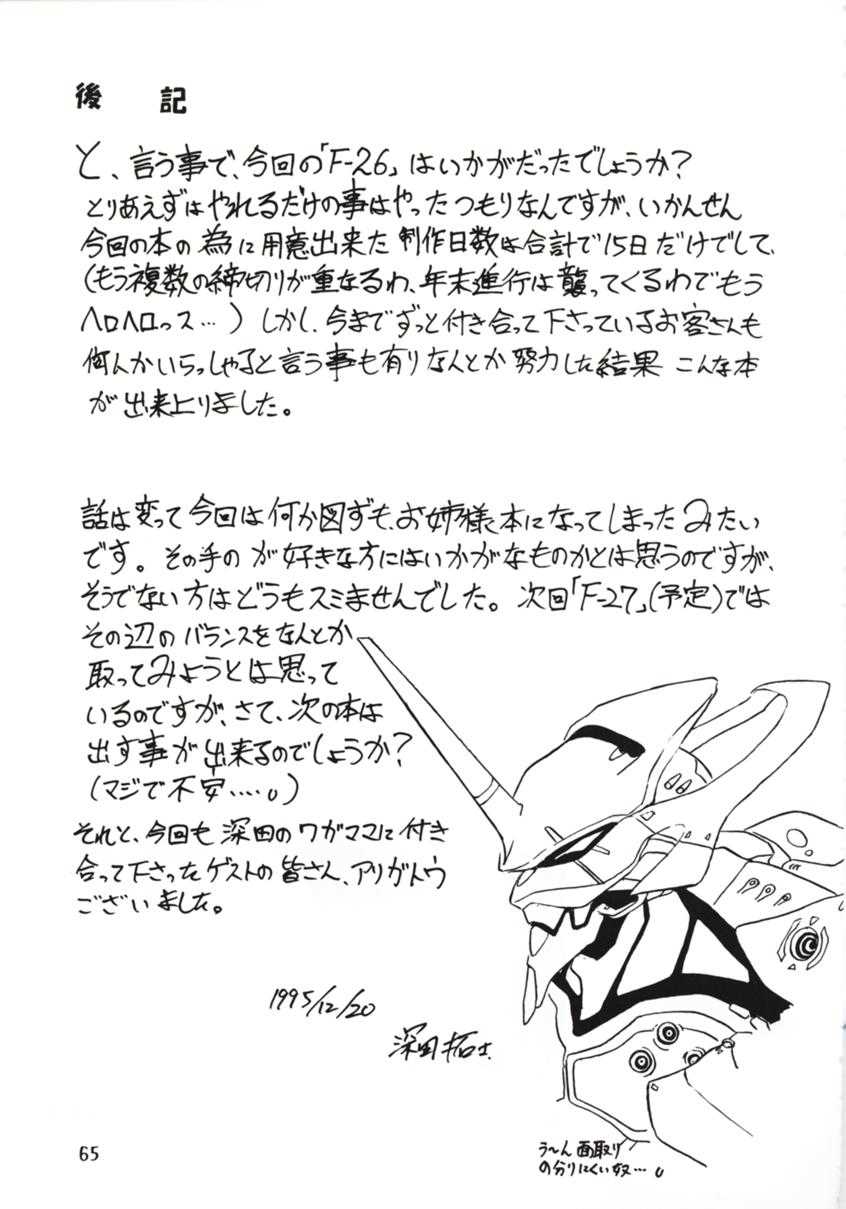 後記
と、言う事で、今回の「F-26」はいかがだったでしょうか？
とりあえずはやれるだけの事はやったつもりなんですが、いかんせん
今回の本の為に用意出来た制作日数は合計で15日だけでして、
（もう複数の締切りが重なるわ、年末進行は襲ってくるわでもう
ヘロヘロっス…）しかし、今までずっと付き合って下さっているお客さんも
何んかいらっしゃると言う事も有りなんとか努力した結果こんな本
が出来上りました。
話は変って今回は何か図ずも、お姉様本になってしまったみたい
です。その手のが好きな方にはいかがなものかとは思うのですが、
そうでない方はどうもスミませんでした。次回「F-27」（予定）では
その辺のバランスをなんとか
取ってみようとは思って
いるのですが、さて、次の本は
出す事が出来るのでしょうか？
（マジで不安……。）
それと、今回も深田のワガママに付き
合って下さったゲストの皆さん、アリガトウ
ございました。
1995/12/20
深田拓士
う〜ん面取り
の分りにくい奴…。
65